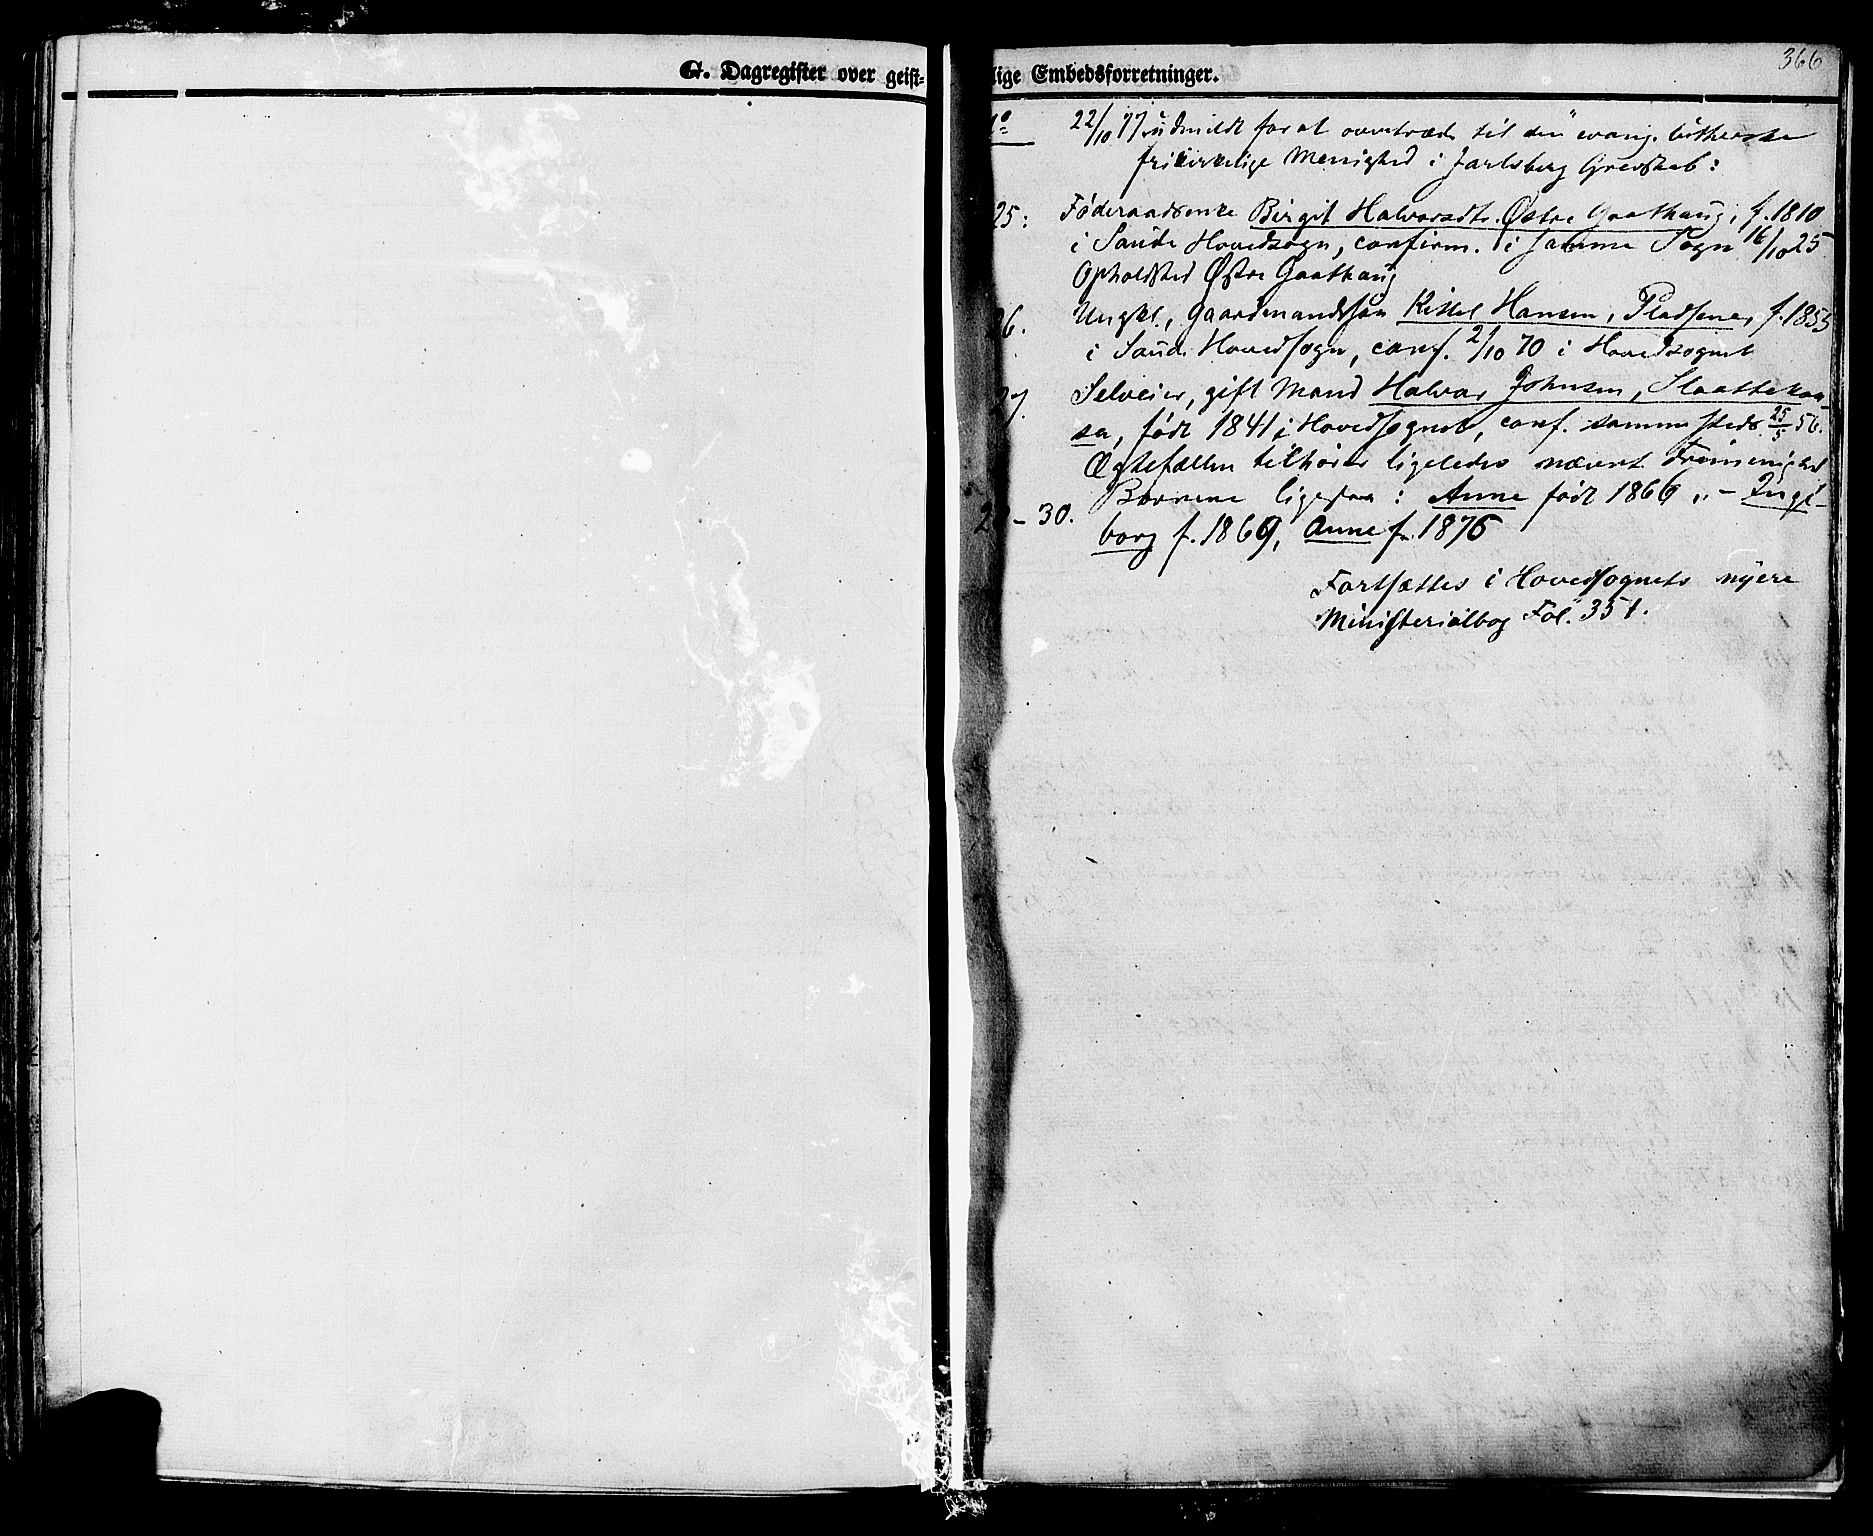 366
G. Dagregister over geist-
lige Embedsforretninger.
22/10 77 udmeldt for at overtræde til den evang. lutherske
frikirkelige Menighed i Jarlsberg Grevskab:
25: Føderaadsenke Birgit Halvorsdtr. Østre Gaathaug, f. 1810
i Saude Hovedsogn, confirm. i samme Sogn 16/10 25
Opholdsted Østre Gaathaug
26. Ungkl., Gaardmandssøn Kittel Hansen, Pladsene, f. 1855
i Saude Hovedsogn, conf. 2/10 70 i Hovedsognet
27. Selveier, gift Mand Halvor Johnsen, Slaattekaa-
sa, født 1841 i Hovedsognet, conf. sammesteds 25/5 56.
Ægtefællen tilhører ligeledes nævnt Frimenighed
28-30. Børnene ligesaa: Anne født 1866 „ - Inge-
borg f. 1869, Anne f. 1876
Fortsættes i Hovedsognets nyere
Ministerialbog Fol. 351.